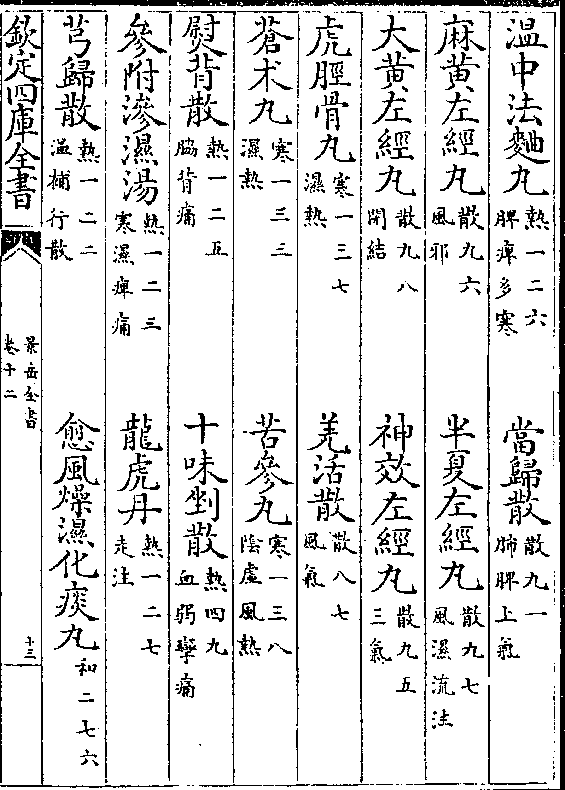 溫中法麯丸 熱一二六 脾痺多寒 當歸散 散九一 肺脾上氣
麻黃左經丸 散九六 風邪 半夏左經丸 散九七 風濕流注
大黃左經丸 散九八 閉結 神效左經丸 散九五 三氣
虎脛骨丸 寒一三七 濕熱 羌活散 散八七 風氣
蒼朮丸 寒一三三 濕熱 苦參丸 寒一三八 陰虛風熱
熨背散 熱一二五 胸背痛 十味剉散 熱四九 血弱攣痛
參附滲濕湯 熱一二三 寒濕痺痛 龍虎丹 熱一二七 走注
芎歸散 熱一二二 溫補行散 愈風燥濕化痰丸 和二七六
欽定四庫全書 景岳全書 卷十二 十三